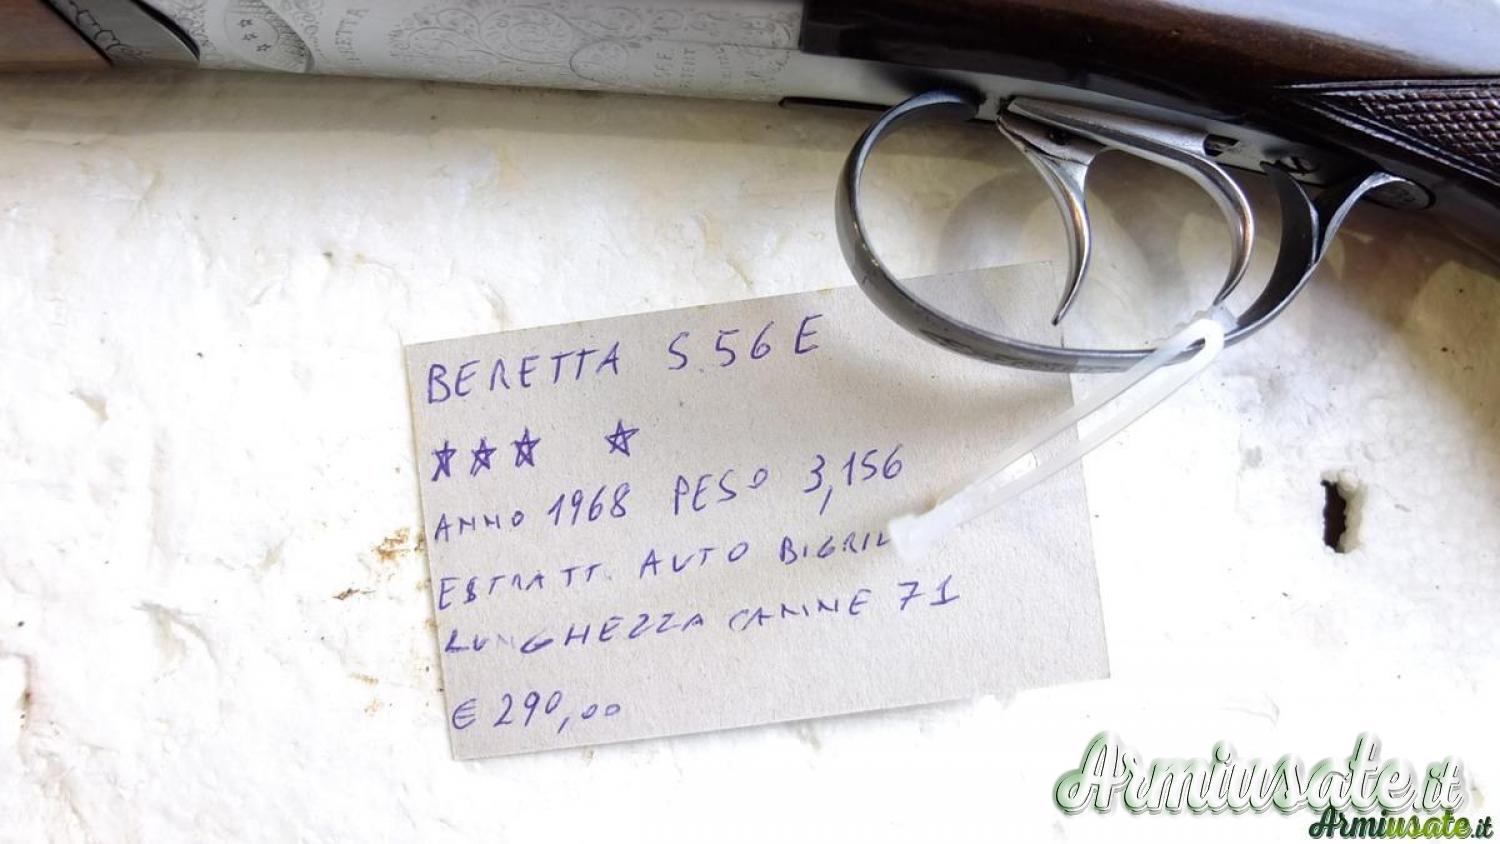 BERETTA
BERETTA S.56 E
★★★ ★
ANNO 1968 PESO 3,156
ESTRATT. AUTO BIGRIL
LUNGHEZZA CANNE 71
€ 290,00
Armiusate.it
Armiusate.it